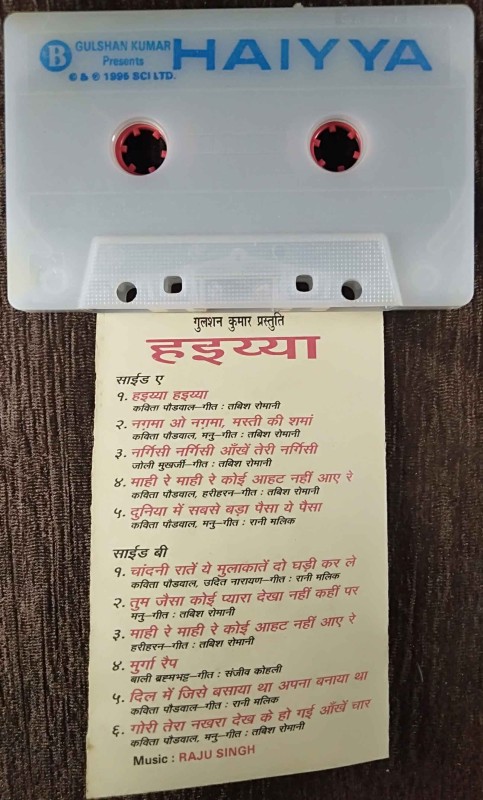 B GULSHAN KUMAR
Presents
HAIYYA
© & ℗ 1996 SCI LTD.
गुलशन कुमार प्रस्तुति
हइय्या
साईड ए
१. हइय्या हइय्या
कविता पौडवाल—गीत : तबिश रोमानी
२. नग़मा ओ नग़मा, मस्ती की शमां
कविता पौडवाल, मनु—गीत : तबिश रोमानी
३. नर्गिसी नर्गिसी आँखें तेरी नर्गिसी
जोली मुखर्जी—गीत : तबिश रोमानी
४. माही रे माही रे कोई आहट नहीं आए रे
कविता पौडवाल, हरीहरन—गीत : तबिश रोमानी
५. दुनिया में सबसे बड़ा पैसा ये पैसा
कविता पौडवाल, मनु—गीत : रानी मलिक
साईड बी
१. चांदनी रातें ये मुलाकातें दो घड़ी कर ले
कविता पौडवाल, उदित नारायण—गीत : रानी मलिक
२. तुम जैसा कोई प्यारा देखा नहीं कहीं पर
मनु—गीत : तबिश रोमानी
३. माही रे माही रे कोई आहट नहीं आए रे
हरीहरन—गीत : तबिश रोमानी
४. मुर्गा रैप
बाली ब्रह्मभट्ट—गीत : संजीव कोहली
५. दिल में जिसे बसाया था अपना बनाया था
कविता पौडवाल—गीत : रानी मलिक
६. गोरी तेरा नखरा देख के हो गई आँखें चार
कविता पौडवाल, मनु—गीत : तबिश रोमानी
Music : RAJU SINGH